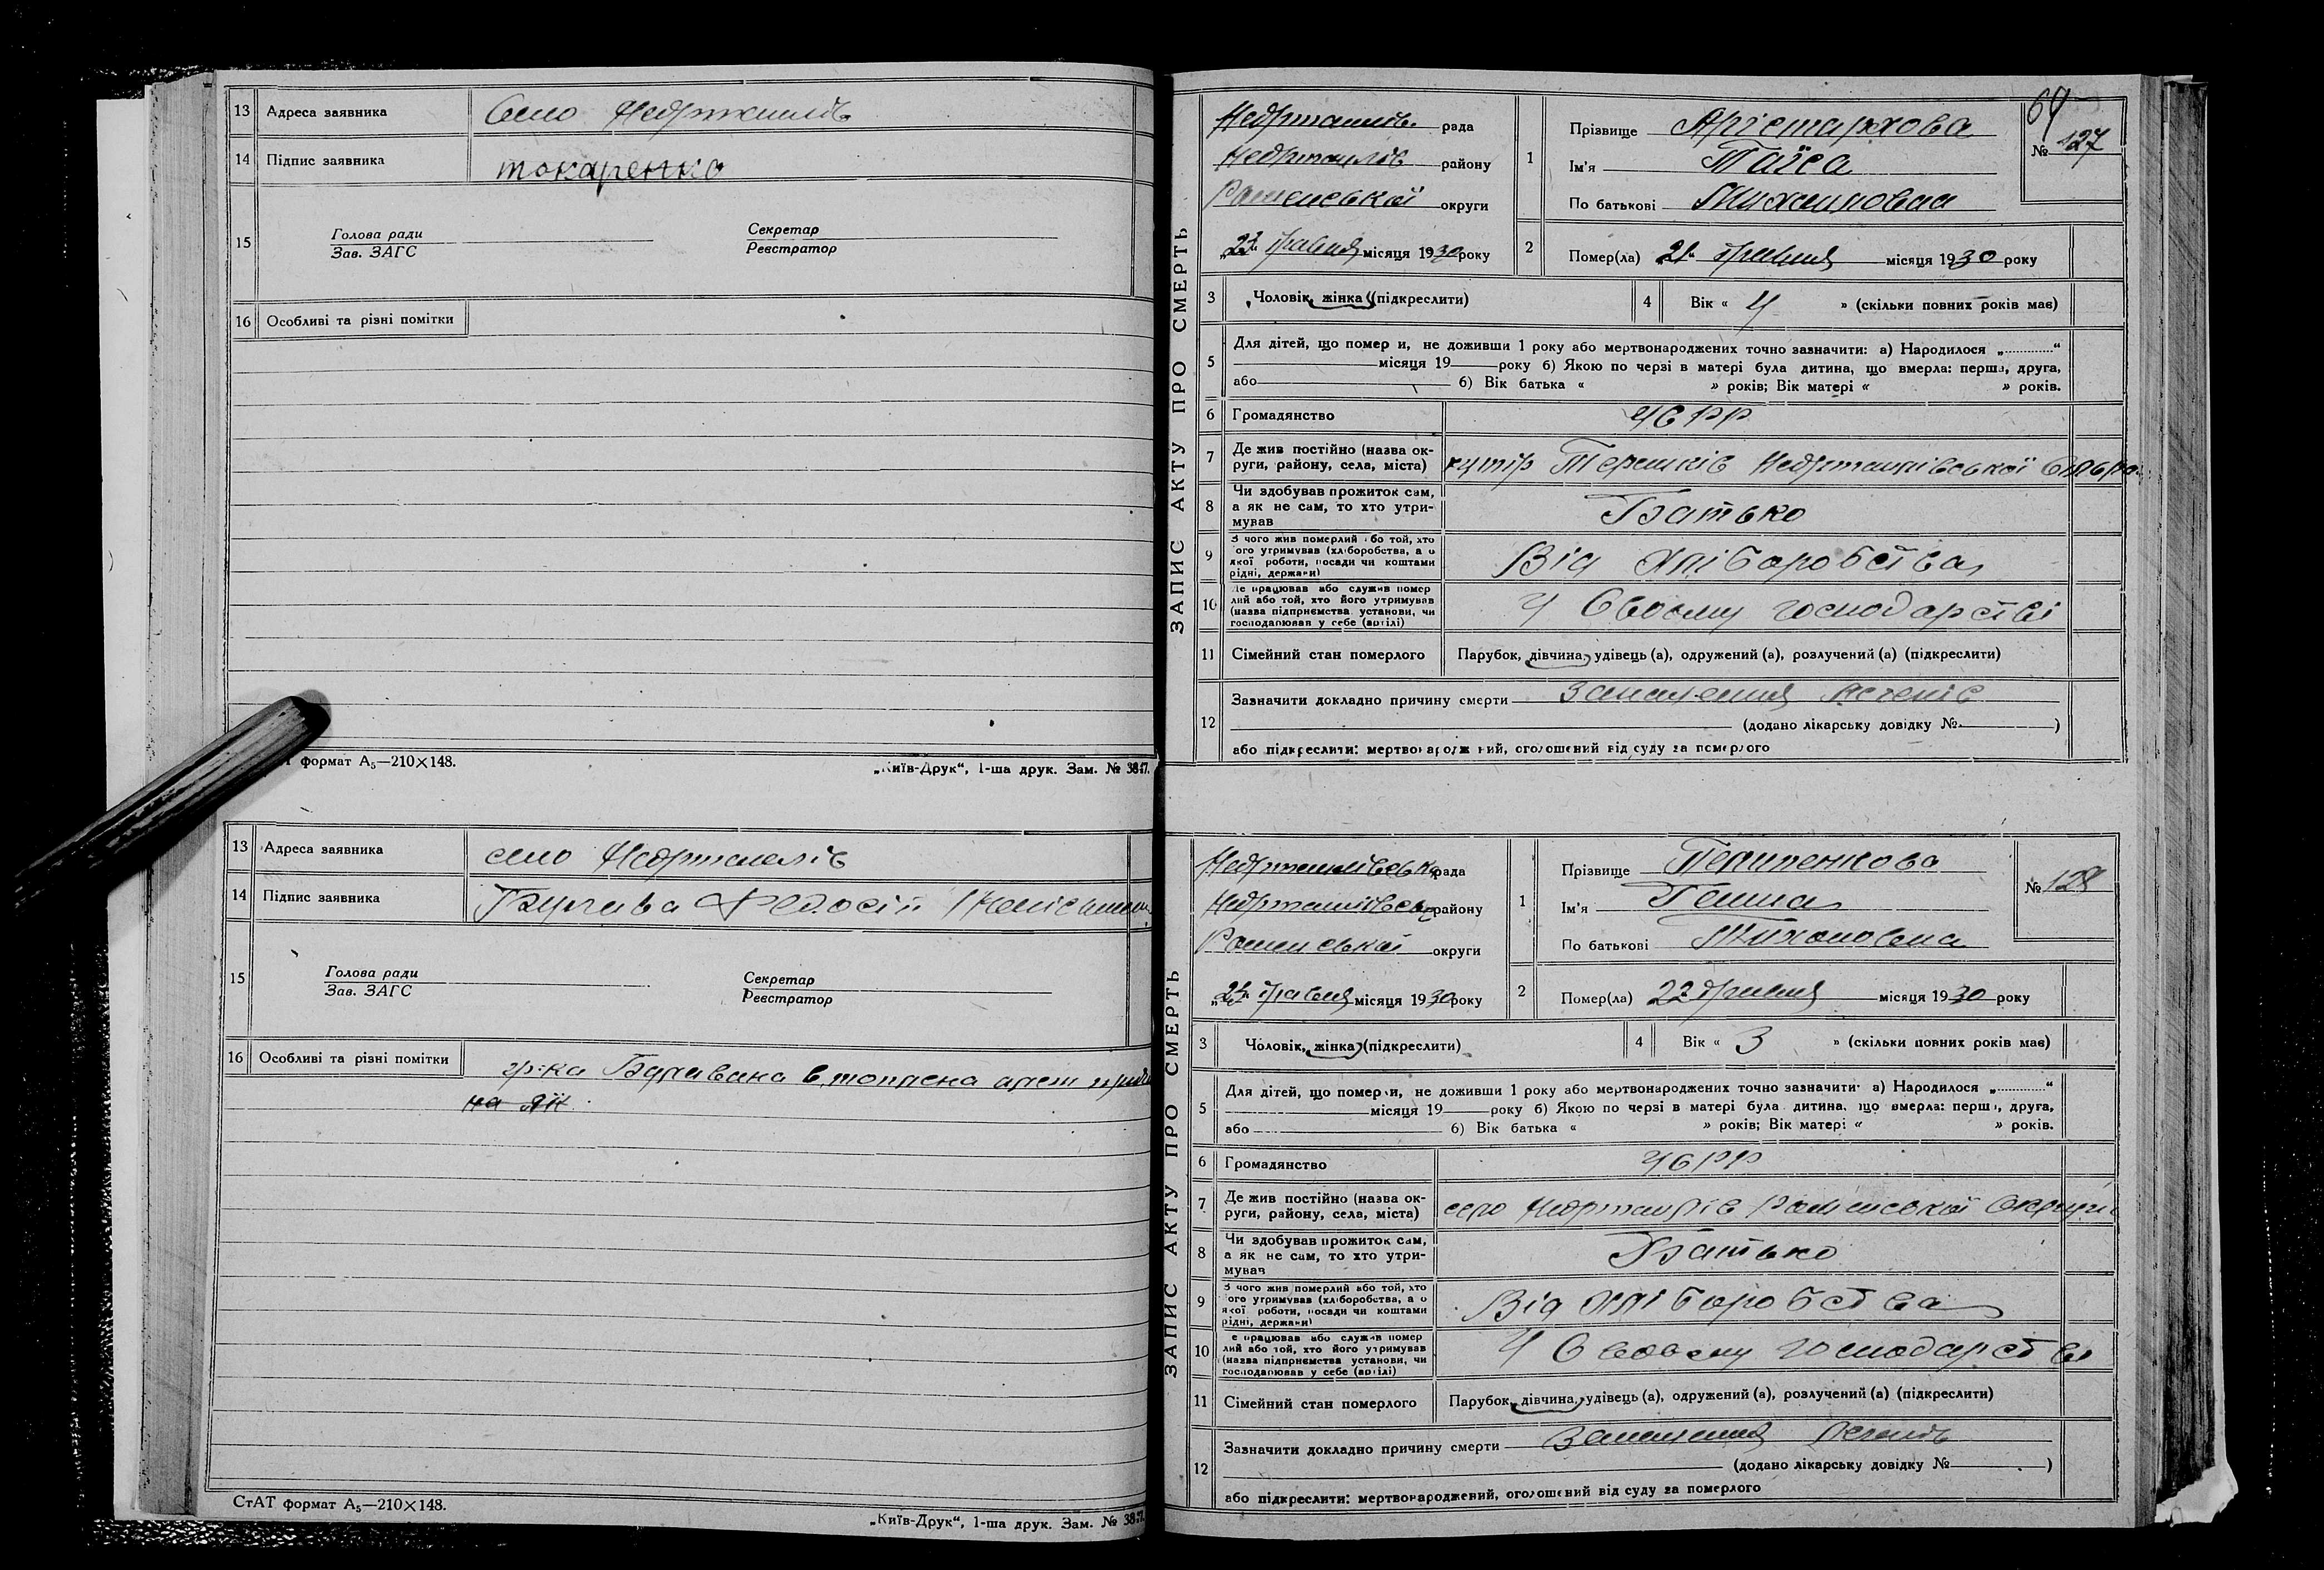 13 Адреса заявника Село Недригайлів
14 Підпис заявника токаренко
15 Голова ради
Зав. ЗАГС
Секретар
Реєстратор
16 Особливі та різні помітки
формат А₅—210×148.
„Київ-Друк“, 1-ша друк. Зам. № 3817.
13 Адреса заявника село Недригайлів
14 Підпис заявника Федосій
15 Голова ради
Зав. ЗАГС
Секретар
Реєстратор
16 Особливі та різні помітки гр-ка
на
СтАТ формат А₅—210×148.
„Київ-Друк“, 1-ша друк. Зам. № 3817.
64
ЗАПИС АКТУ ПРО СМЕРТЬ
Недригайлів. рада
Недригайлів району
Роменської округи
„22“ травня місяця 1930 року
1 Прізвище Арістархова
Ім'я Таїса
По батькові
№ 127
2 Помер(ла) „21“ травня місяця 1930 року
3 Чоловік, жінка (підкреслити)
4 Вік « 4 » (скільки повних років має)
5 Для дітей, що помер и, не доживши 1 року або мертвонароджених точно зазначити: а) Народилося „............“
місяця 19 року б) Якою по черзі в матері була дитина, що вмерла: перша, друга,
або б) Вік батька « » років; Вік матері « » років.
6 Громадянство УСРР
7 Де жив постійно (назва ок-
руги, району, села, міста) хутір Терешків Недригайлівської
8 Чи здобував прожиток сам,
а як не сам, то хто утри-
мував Батько
9 З чого жив померлий або той, хто
його утримував (хліборобства, а о
якої роботи, посади чи коштами
рідні, держави) Від хліборобства
10 Де працював або служив помер
лий або той, хто його утримував
(назва підприємства установи, чи
господарював у себе (артілі) У Своєму господарстві
11 Сімейний стан померлого Парубок, дівчина, удівець (а), одружений (а), розлучений (а) (підкреслити)
12 Зазначити докладно причину смерти Запалення легенів
(додано лікарську довідку № )
або підкреслити: мертвонароджений, оголошений від суду за померлого
ЗАПИС АКТУ ПРО СМЕРТЬ
Недригайлівська рада
Недригайлівськ району
Роменської округи
травня місяця 1930 року
1 Прізвище
Ім'я
По батькові Тихоновна
№ 128
2 Помер(ла) 22 травня місяця 1930 року
3 Чоловік, жінка (підкреслити)
4 Вік « 3 » (скільки повних років має)
5 Для дітей, що померли, не доживши 1 року або мертвонароджених точно зазначити: а) Народилося „............“
місяця 19 року б) Якою по черзі в матері була дитина, що вмерла: перша, друга,
або б) Вік батька « » років; Вік матері « » років.
6 Громадянство УСРР
7 Де жив постійно (назва ок-
руги, району, села, міста) село Недригайлів Роменської Округи
8 Чи здобував прожиток сам,
а як не сам, то хто утри-
мував Батько
9 З чого жив померлий або той, хто
його утримував (хліборобства, а о
якої роботи, посади чи коштами
рідні, держави) Від хліборобства
10 Де працював або служив помер
лий або той, хто його утримував
(назва підприємства установи, чи
господарював у себе (артілі) У Своєму господарстві
11 Сімейний стан померлого Парубок, дівчина, удівець (а), одружений (а), розлучений (а) (підкреслити)
12 Зазначити докладно причину смерти Запалення легенів
(додано лікарську довідку № )
або підкреслити: мертвонароджений, оголошений від суду за померлого